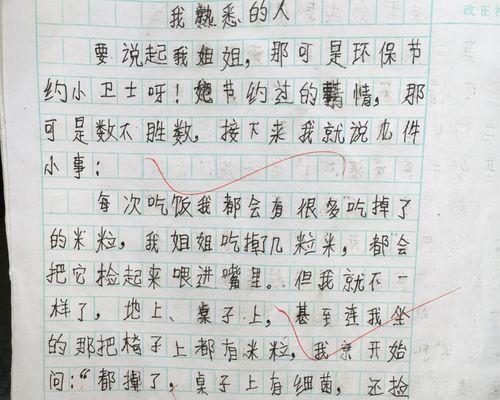 改正
我熟悉的人
要说起我姐姐，那可是环保节
约小卫士呀！她节约过的事情，那
可是数不胜数，接下来我就说几件
小事：
每次吃饭我都会有很多吃掉了
的米粒，我姐姐吃掉了几粒米，都会
把它捡起来喂进嘴里。但我就不一
样了，地上、桌子上，甚至连我坐
的那把椅子上都有米粒，我京开始
问：“都掉了，桌子上有细菌，还捡